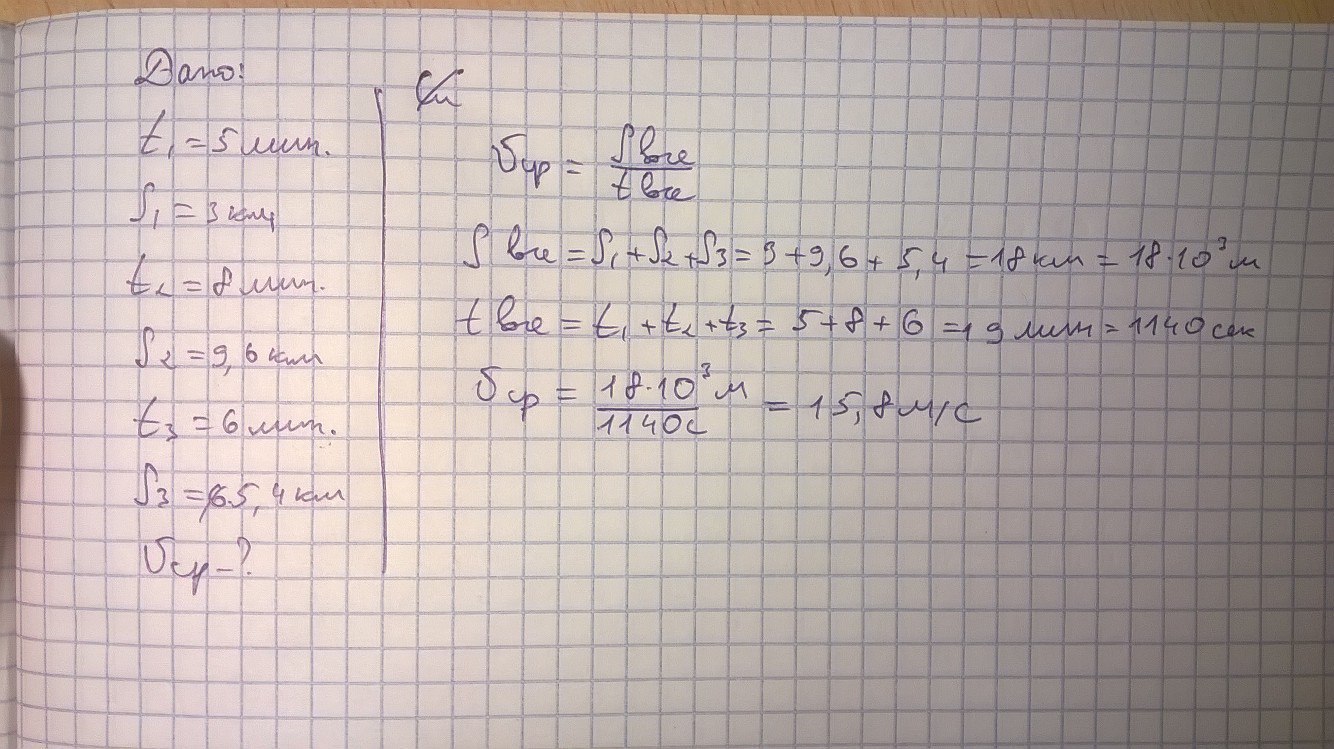 Дано:
t₁ = 5 мин.
S₁ = 3 км
t₂ = 8 мин.
S₂ = 9,6 км
t₃ = 6 мин.
S₃ = 5,4 км
υср - ?
υср = Sвсе / tвсе
Sвсе = S₁ + S₂ + S₃ = 3 + 9,6 + 5,4 = 18 км = 18·10³ м
tвсе = t₁ + t₂ + t₃ = 5 + 8 + 6 = 19 мин = 1140 сек
υср = 18·10³ м / 1140 с = 15,8 м/с